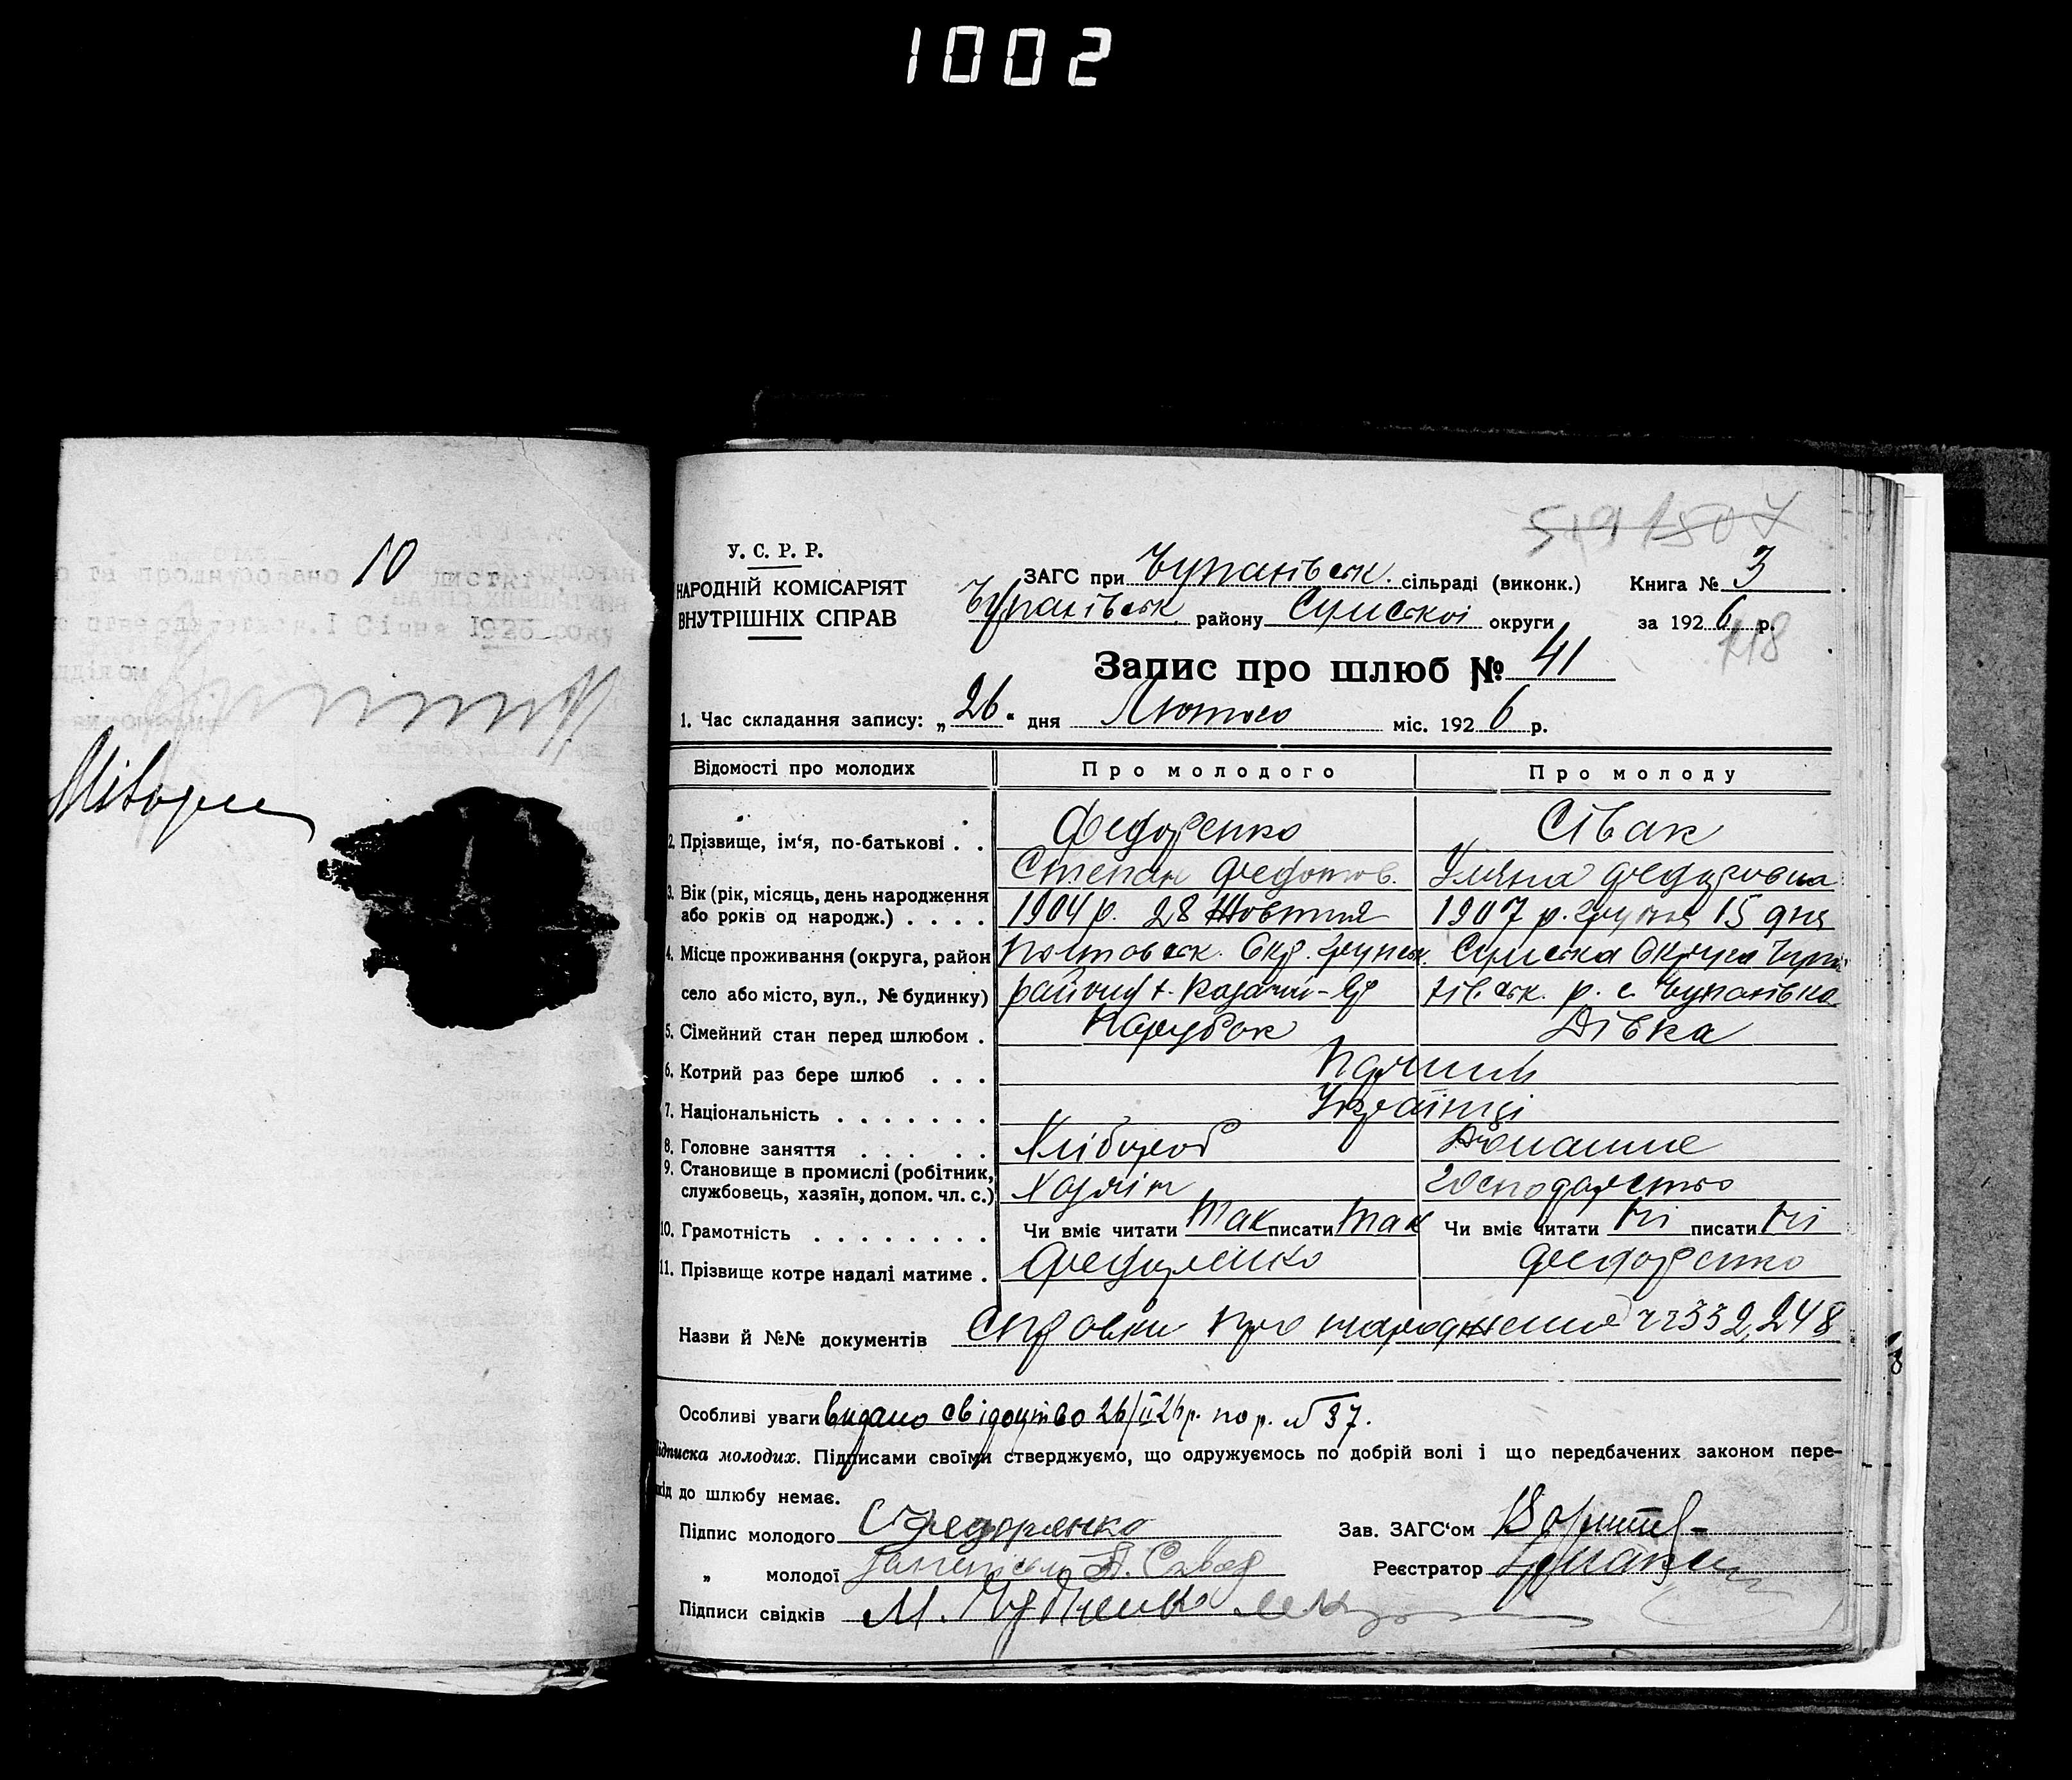 1002
10
1 Січня 1926 року
У. С. Р. Р.
НАРОДНІЙ КОМІСАРІЯТ
ВНУТРІШНІХ СПРАВ
ЗАГС при Чупахівськ. сільраді (виконк.)
Книга № 3
Чупахівськ району Сумської округи
за 1926 р.
118
Запис про шлюб № 41
1. Час складання запису: „26" дня Лютого міс. 1926 р.
Відомості про молодих
Про молодого
Про молоду
2. Прізвище, ім'я, по-батькові . .
Федоренко
Сівак
Степан Федотов.
Уляна Федоровна
3. Вік (рік, місяць, день народження або років од народж.) . . . .
1904 р. 28 Жовтня
1907 р. грудня 15 дня
4. Місце проживання (округа, район
Полтовськ. Окр. Грунськ.
Сумська Округа Чупа
село або місто, вул., № будинку)
району х.
хівськ. р. с. Чупахівка
5. Сімейний стан перед шлюбом .
Парубок
Дівка
6. Котрий раз бере шлюб . . .
Перший
7. Національність . . . . . . .
Українці
8. Головне заняття . . . . .
Хлібороб
Домашнє
9. Становище в промислі (робітник, службовець, хазяїн, допом. чл. с.)
Хазяїн
господарство
10. Грамотність . . . . . . . .
Чи вміє читати Так писати Так
Чи вміє читати Ні писати Ні
11. Прізвище котре надалі матиме .
Федоренко
Федоренко
Назви й №№ документів Справки про народження чч 332, 248
Особливі уваги видано свідоцтво 26/II 26 р. по р. № 37.
Підписка молодих. Підписами своїми стверджуємо, що одружуємось по добрій волі і що передбачених законом пере-
кід до шлюбу немає.
Підпис молодого С Федоренко
Зав. ЗАГС'ом
„ молодої
Реєстратор
Підписи свідків М.